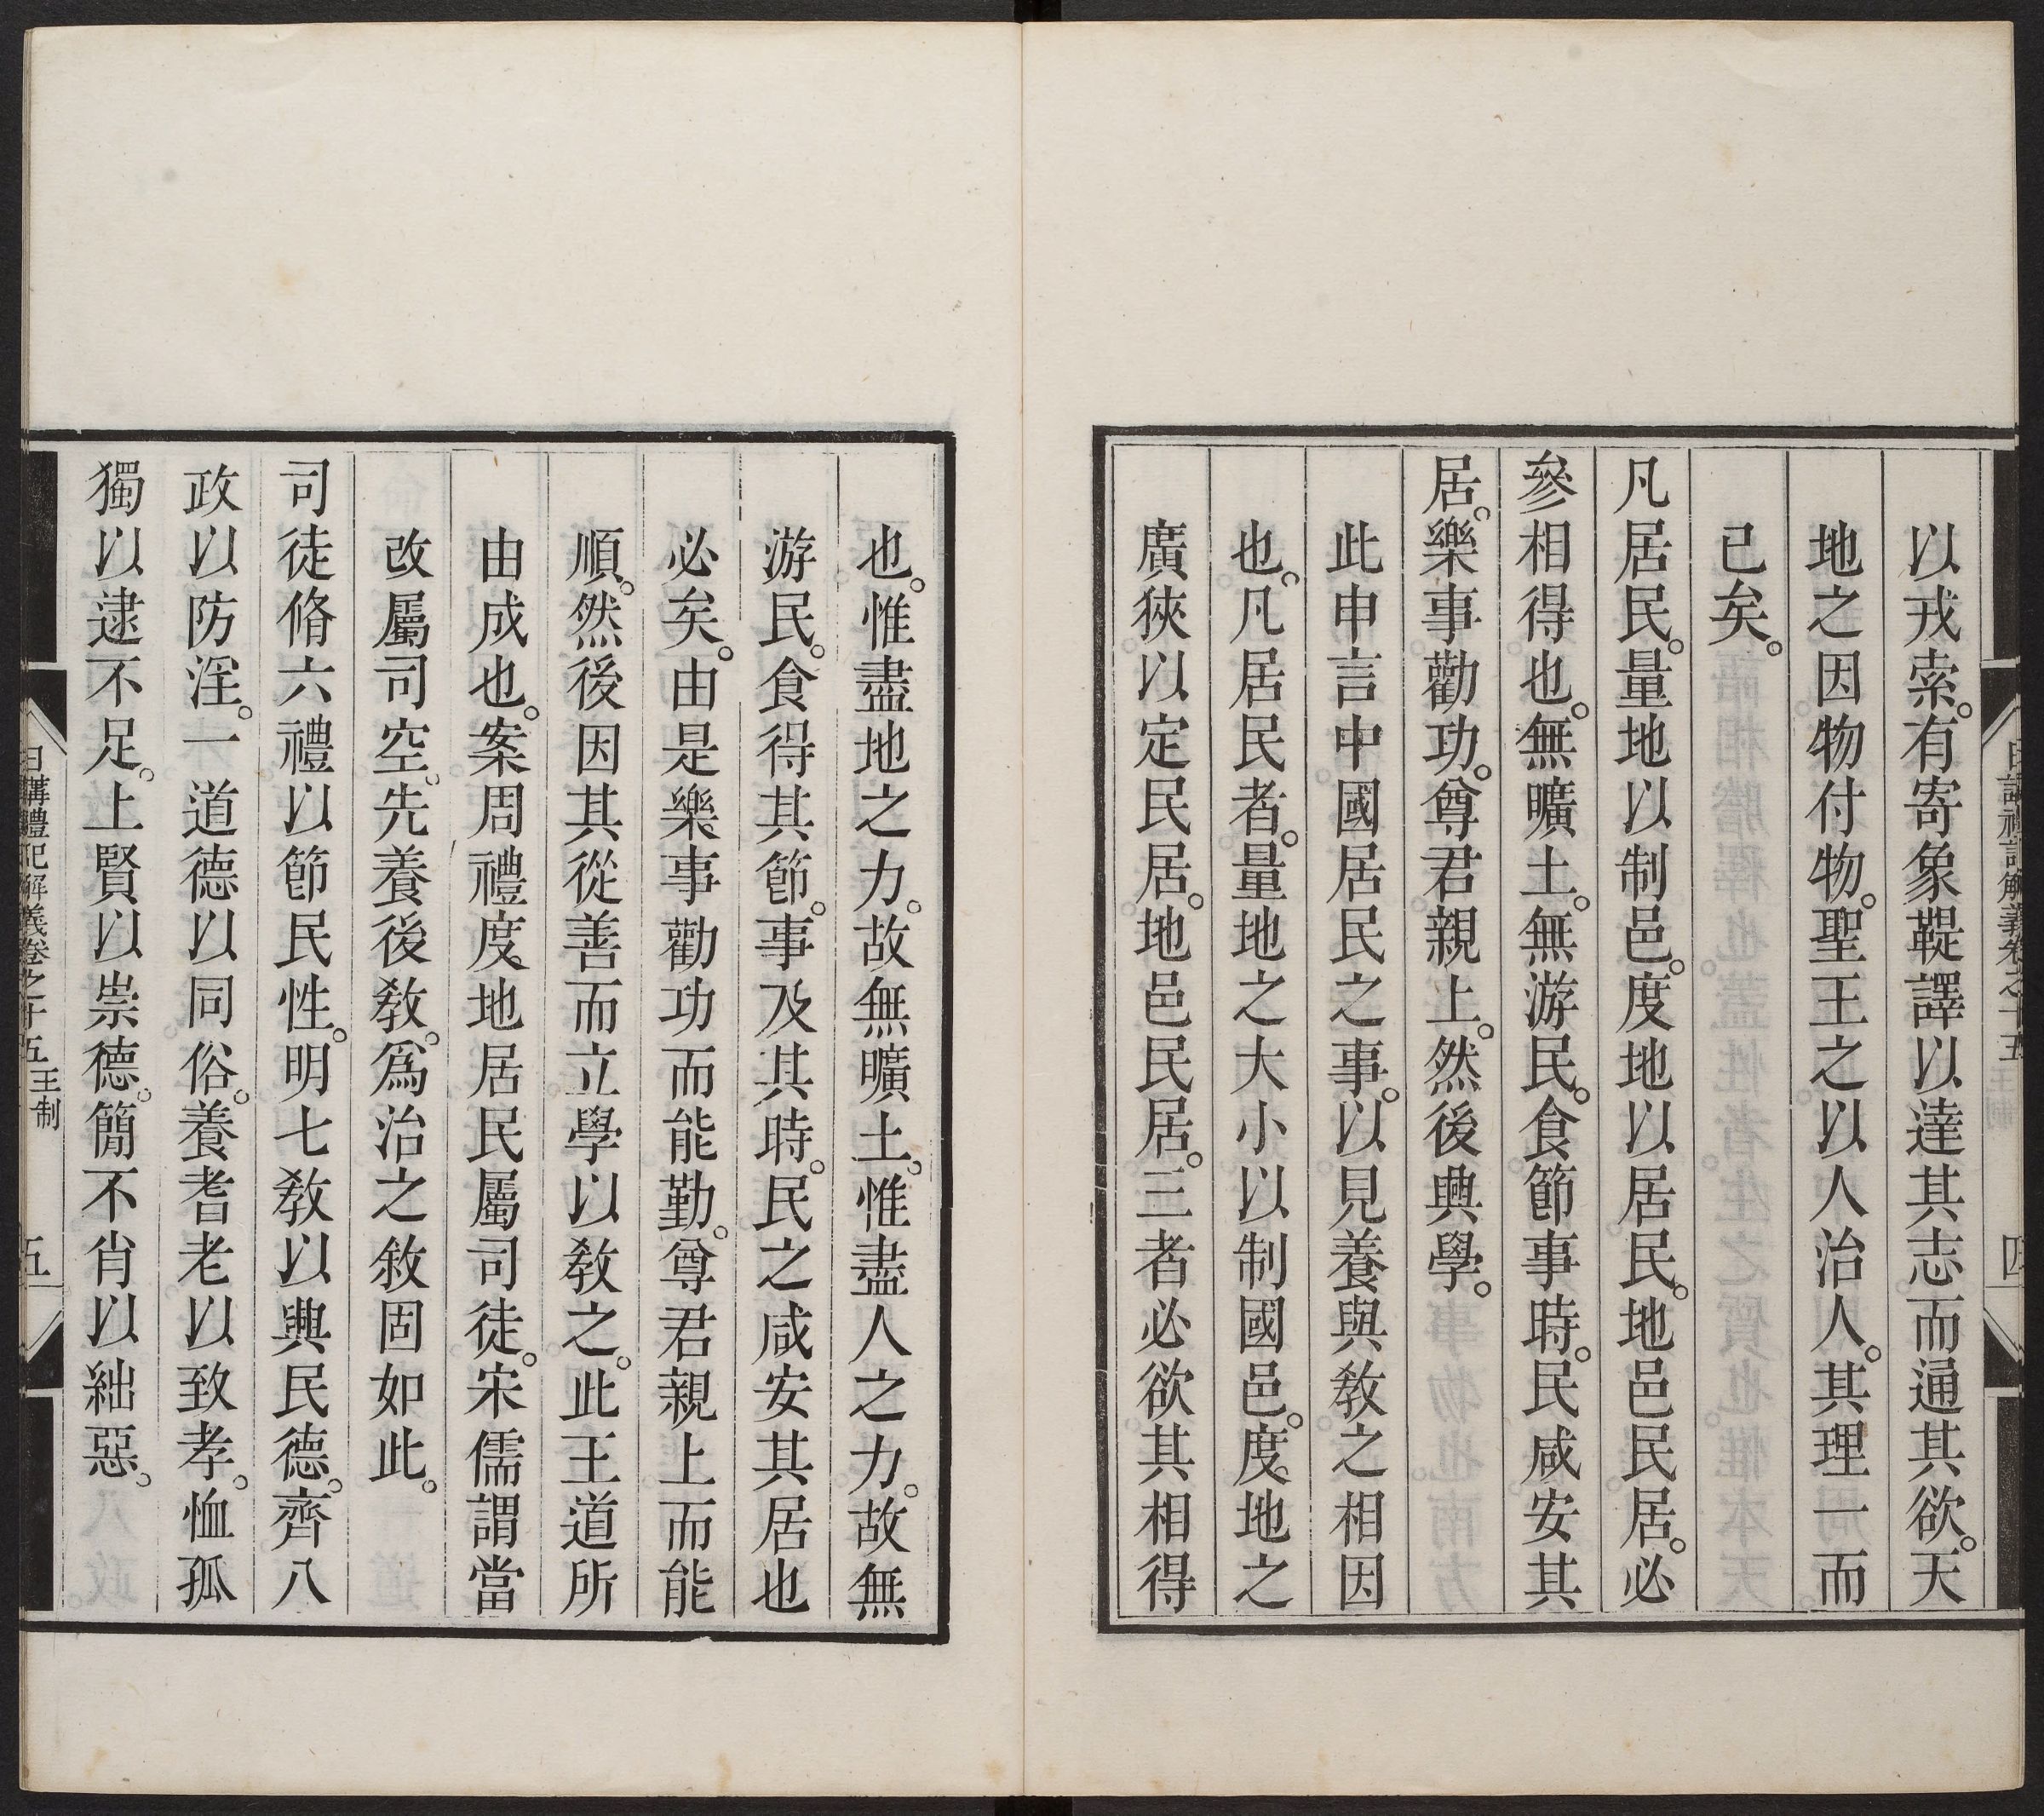 以戎索。有寄象鞮譯以達其志而通其欲。天
地之因物付物。聖王之以人治人。其理一而
已矣。
凡居民。量地以制邑。度地以居民。地邑民居。必
參相得也。無曠土。無游民。食節事時。民咸安其
居。樂事勸功。尊君親上。然後興學。
此申言中國居民之事。以見養與敎之相因
也。凡居民者。量地之大小以制國邑。度地之
廣狹以定民居。地邑民居。三者必欲其相得
也。惟盡地之力。故無曠土。惟盡人之力。故無
游民。食得其節。事及其時。民之咸安其居也
必矣。由是樂事勸功而能勤。尊君親上而能
順。然後因其從善而立學以敎之。此王道所
由成也。案周禮度地居民屬司徒。宋儒謂當
改屬司空。先養後敎。爲治之敘固如此。
司徒脩六禮以節民性。明七敎以興民德。齊八
政以防淫。一道德以同俗。養耆老以致孝。恤孤
獨以逮不足。上賢以崇德。簡不肖以絀惡。
日講禮記解義卷之十五 王制
五